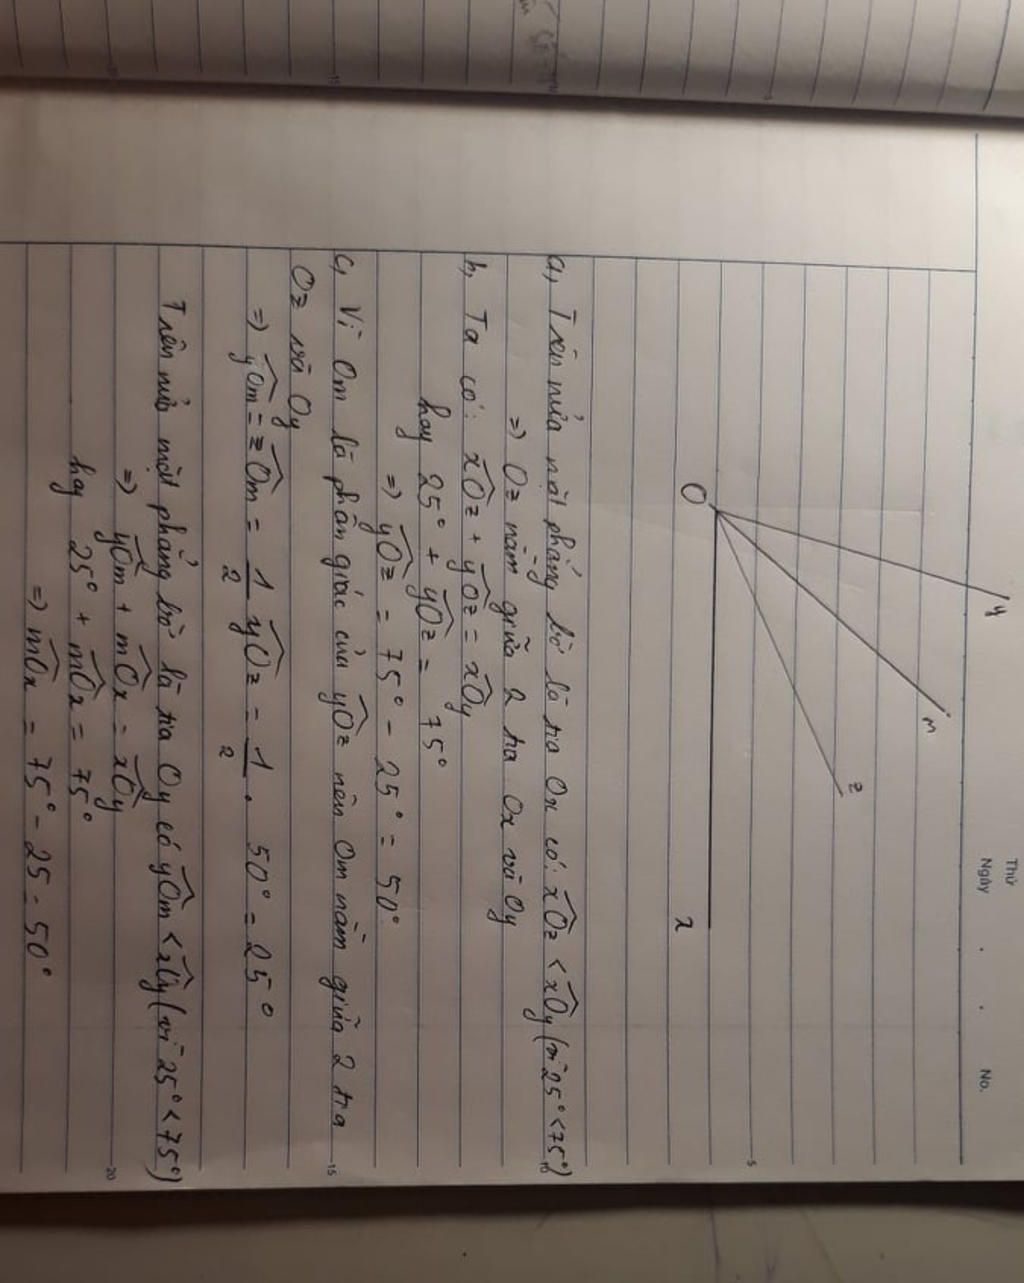 Thứ
Ngày . . No.
y
m
z
O
x
5
a, Trên nửa mặt phẳng bờ là tia Ox có: xOz < xOy (vì 25° < 75°)
10
=) Oz nằm giữa 2 tia Ox và Oy
b, Ta có: xOz + yOz = xOy
hay 25° + yOz = 75°
=) yOz = 75° - 25° = 50°
c, Vì Om là phân giác của yOz nên Om nằm giữa 2 tia
15
Oz và Oy
=) yOm = zOm = 1/2 yOz = 1/2 . 50° = 25°
Trên nửa mặt phẳng bờ là tia Oy có yOm < xOy (vì 25° < 75°)
20
=) yOm + mOx = xOy
hay 25° + mOx = 75°
=) mOx = 75° - 25 = 50°